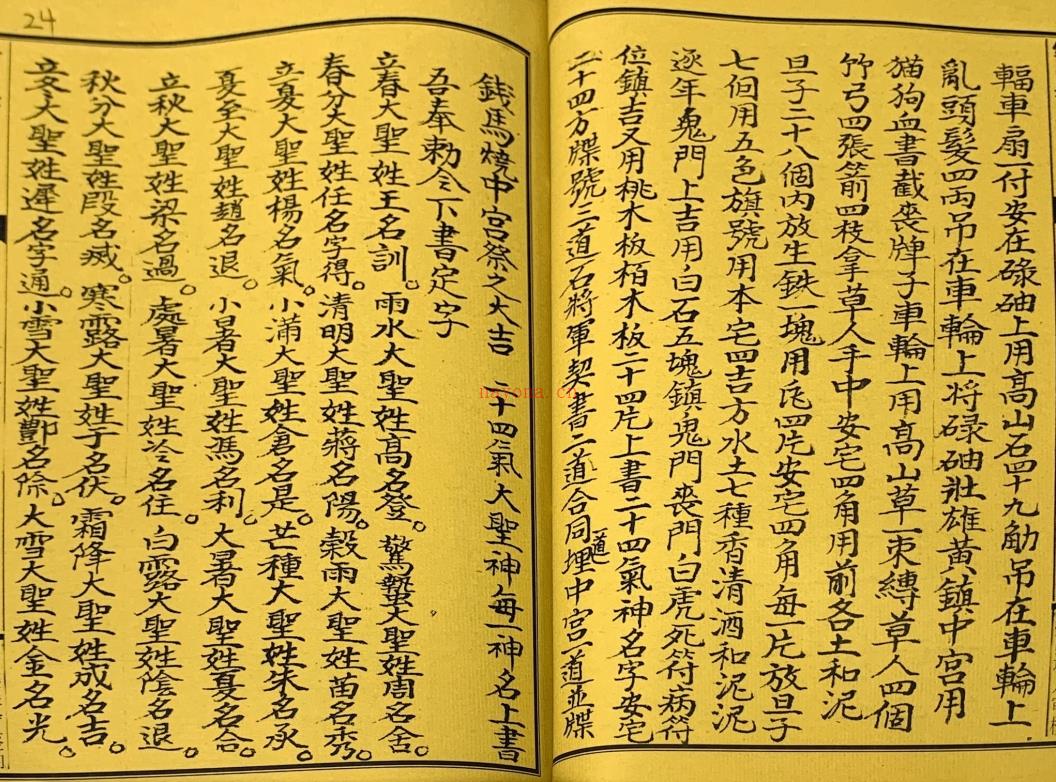 輻車扇一付安在碌碡上用高山石四十九觔吊在車輪上
亂頭髮四両吊在車輪上将碌碡壯雄黄鎮中宮用
猫狗血書截丧牌子車輪上用高山草一束縛草人四個
竹弓四張箭四枝拿草人手中安宅四角用前各土和泥
旦子二十八個内放生鉄一塊用瓦四片安宅四角每一片放旦子
七個用五色旗號用本宅四吉方水土七種香清酒和泥泥
逐年鬼門上吉用白石五塊鎮鬼門丧門白虎死符病符
位鎮吉又用桃木板栢木板二十四片上書二十四氣神名字安宅
二十四方牒號二道石將軍契書二道合同一道埋中宮一道並牒
錢馬燒中宮祭之大吉 二十四氣大聖神每一神名上書
吾奉勅令下書定字
立春大聖姓王名訓。雨水大聖姓高名登。驚蟄大聖姓周名舍。
春分大聖姓任名字得。清明大聖姓蔣名陽。穀雨大聖姓苗名秀。
立夏大聖姓楊名氣。小滿大聖姓倉名是。芒種大聖姓朱名承。
夏至大聖姓趙名退。小暑大聖姓馮名利。大暑大聖姓夏名合。
立秋大聖姓梁名過。處暑大聖姓冷名住。白露大聖姓陰名退。
秋分大聖姓段名滅。寒露大聖姓于名伏。霜降大聖姓成名吉。
立冬大聖姓遲名字通。小雪大聖姓鄷名除。大雪大聖姓金名光。
24
nayona.cn